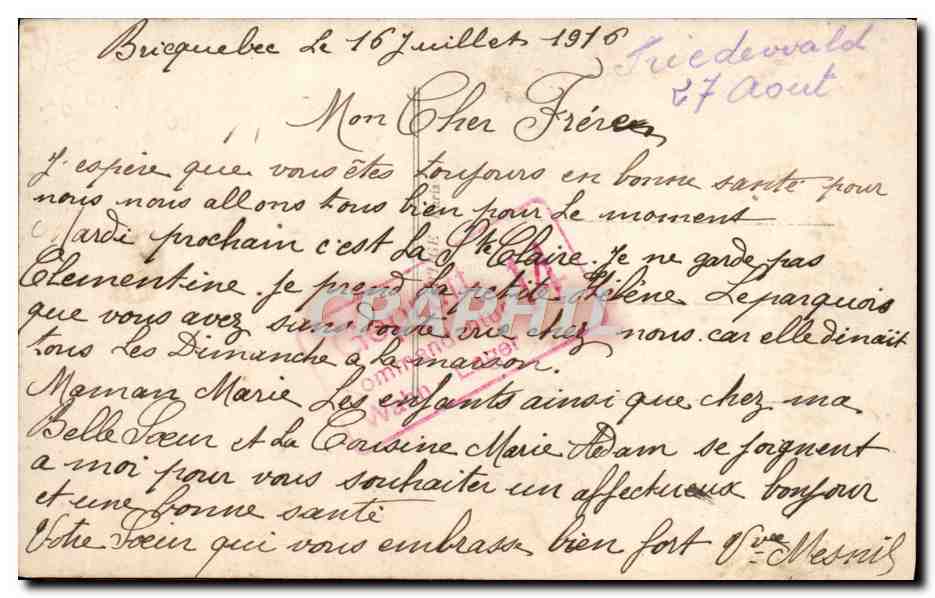 Bricquebec Le 16 Juillet 1916
Friedewald
27 Aout
Mon Cher Frère
J'espère que vous êtes toujours en bonne santé pour
nous nous allons tous bien pour le moment
Mardi prochain c'est La Ste Claire. Je ne garde pas
Clementine. je prend la petite Hélène Leparquois
que vous avez sans doute vue chez nous. car elle dinait
tous Les Dimanche a la maison.
Maman Marie Les enfants ainsi que chez ma
Belle Soeur et La Cousine Marie Adam se joignent
a moi pour vous souhaiter un affectueux bonjour
et une bonne santé
Votre Soeur qui vous embrasse bien fort Vve Mesnil
14
Wahn
CPAPHIL